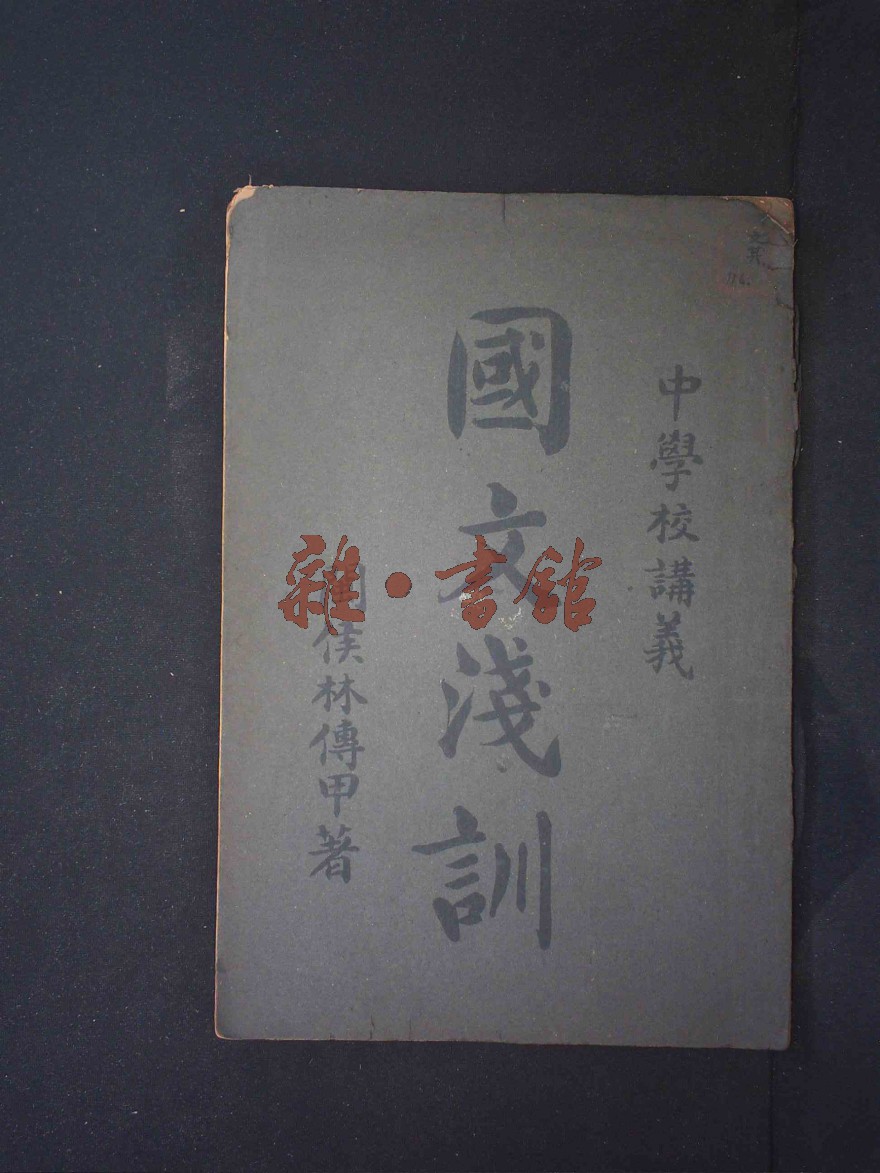 中學校講義
國文淺訓
侯林傳甲著
雜·書館